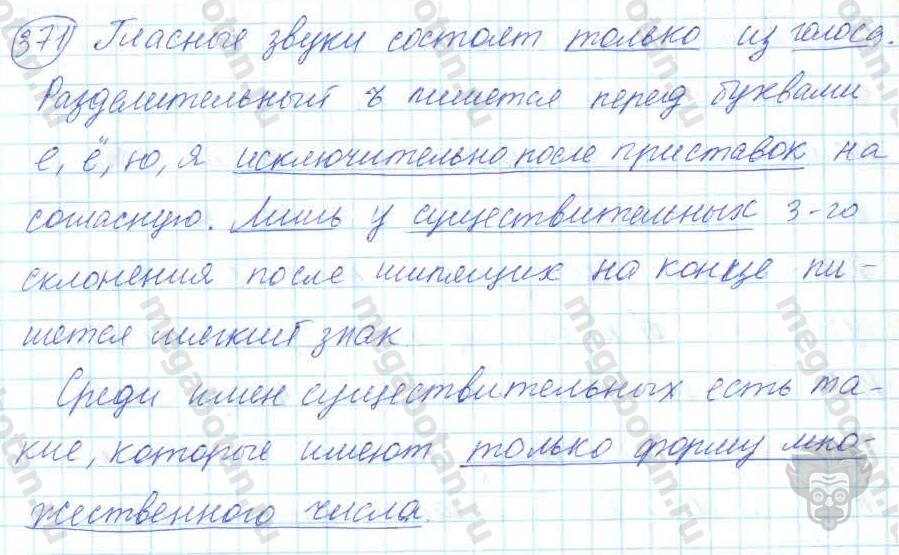 371 Гласные звуки состоят только из голоса.
Разделительный ъ пишется перед буквами
е, ё, ю, я исключительно после приставок на
согласную. Лишь у существительных 3-го
склонения после шипящих на конце пи-
шется мягкий знак.
Среди имен существительных есть та-
кие, которые имеют только форму мно-
жественного числа.
megabotan.ru